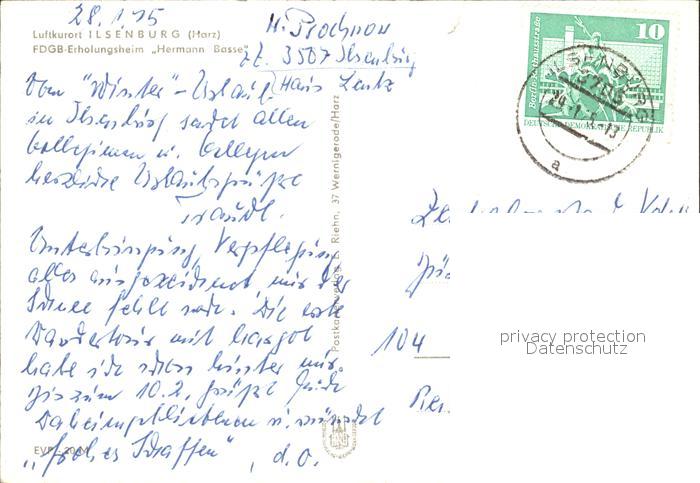 28.1.75
Luftkurort ILSENBURG (Harz)
FDGB-Erholungsheim „Hermann Basse"
H. Prochnow
zZ. 3507 Ilsenburg
Haus Lentz
Vom "Winter"-Urlaub
in Ilsenburg sendet allen
Kolleginnen u. Kollegen
herzliche Urlaubsgrüße
Traudl.
Unterbringung, Verpflegung
alles ausgezeichnet, nur der
Schnee fehlt noch. Die erste
Wandertour mit
habe ich schon hinter mir.
Bis zum 10.2. grüßt Euch
Daheimgebliebenen u. wünscht
„frohes Schaffen" d. O.
EVP
Postkartenverlag E. Riehn, 37 Wernigerode/Harz
10
Berlin, Rathausstraße
DEUTSCHE DEMOKRATISCHE REPUBLIK
ILSENBURG
3705
a
104
privacy protection
Datenschutz